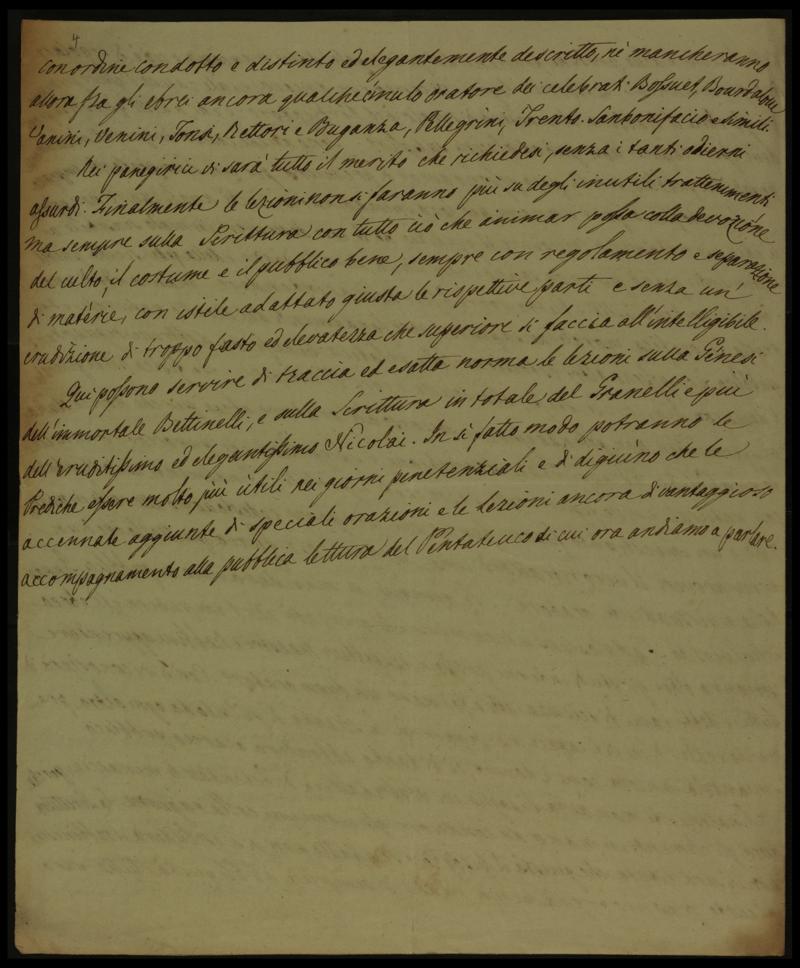 4
con ordine condotto e distinto ed elegantemente descritto, nè mancheranno
allora fra gli ebrei ancora qualche emulo oratore dei celebrati Boſsuet, Bourdaloue
Vanini, Venini, Tonsi, Rettori e Buganza, Pellegrini, Trento. Sanbonifacio e simili.
Nei panegirici vi sarà tutto il merito che richiedesi, senza i tanti odierni
aſsurdi. Finalmente le lezioni non si faranno più su degli inutili trattenimenti
ma sempre sulla Scrittura con tutto ciò che animar poſsa colla devozione
del culto, il costume e il pubblico bene, sempre con regolamento e separazione
di materie, con istile adattato giusta le rispettive parti e senza un'
erudizione di troppo fasto ed elevatezza che superiore si faccia all'intelligibile.
Qui poſsono servire di traccia ed esatta norma le lezioni sulla Genesi
dell'immortale Bettinelli, e sulla Scrittura in totale del Granelli e più
dell'eruditiſsimo ed elegantiſsimo Nicolai. In sì fatto modo potranno le
Prediche eſsere molto più utili nei giorni penetenziali e di digiuno che le
accennate aggiunte di speciali orazioni e le Lezioni ancora di vantaggioso
accompagnamento alla pubblica lettura del Pentateuco di cui ora andiamo a parlare.